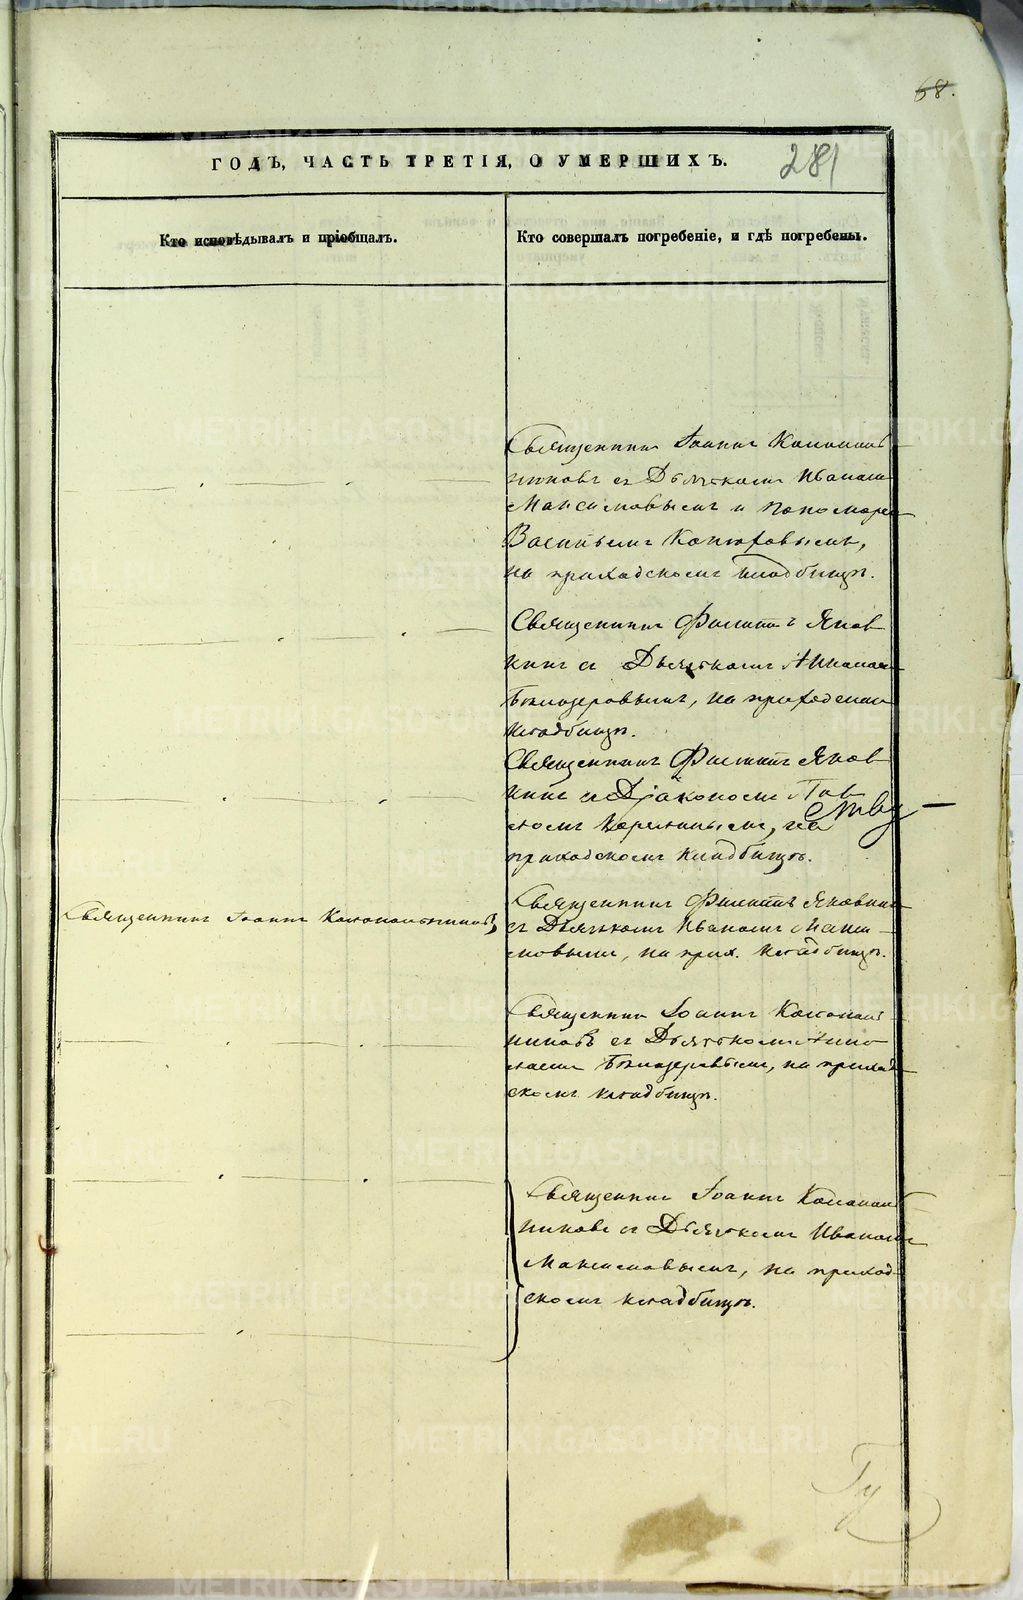 68.
ГОДЪ, ЧАСТЬ ТРЕТІЯ, О УМЕРШИХЪ. 281
Кто исповѣдывалъ и пріобщалъ.
Кто совершалъ погребеніе, и гдѣ погребены.
Священникъ Іоаннъ
съ Дьячкомъ Иваномъ
Максимовымъ и пономаремъ
Васильемъ
на приходскомъ кладбищѣ.
Священникъ Филиппъ Яков
кинъ съ Дьячкомъ
Бѣлозеровымъ, на приходскомъ
кладбищѣ.
Священникъ Филиппъ Яков
кинъ съ Діакономъ Пав
ломъ на
приходскомъ кладбищѣ.
Священникъ Іоаннъ
Священникъ Филиппъ Яковкинъ
съ Дьячкомъ Иваномъ Макси-
мовымъ, на прих. кладбищѣ.
Священникъ Іоаннъ
съ Дьячкомъ
Бѣлозеровымъ, на приход
скомъ кладбищѣ.
Священникъ Іоаннъ
съ Дьячкомъ Иваномъ
Максимовымъ, на приход-
скомъ кладбищѣ.
METRIKI.GASO-URAL.RU